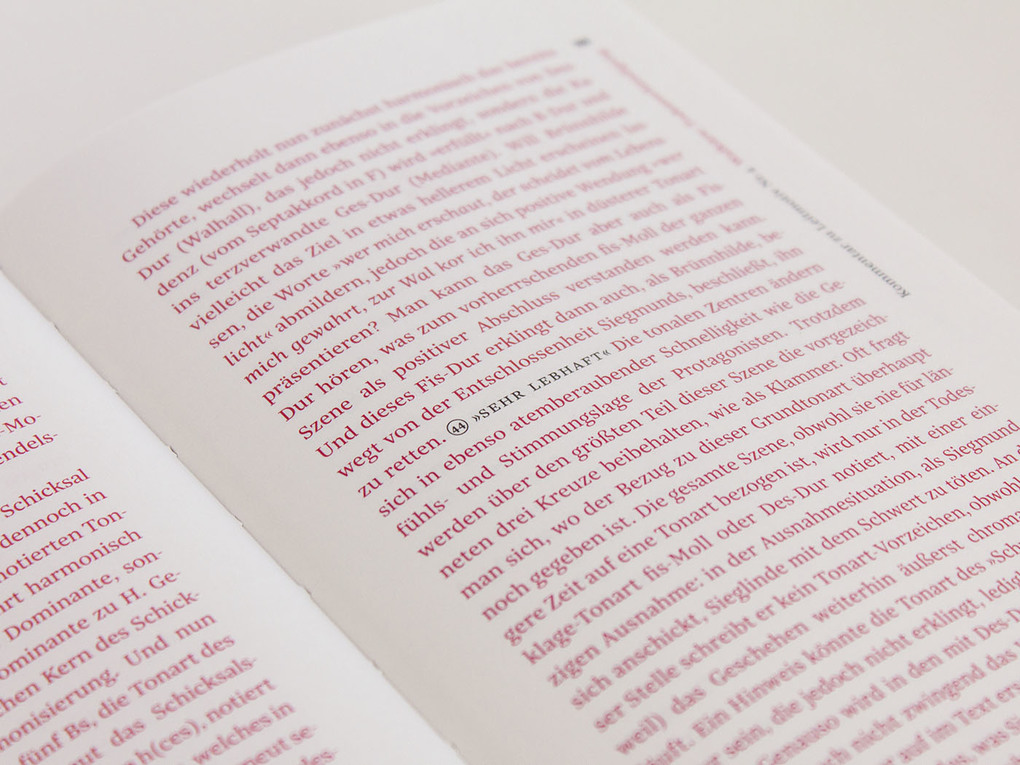 -Mo-
endels-
Schicksal
dennoch in
notierten Ton-
harmonisch
Dominante, son-
ominante zu H. Ge-
hen Kern des Schick-
monisierung. Und nun
fünf Bs, die Tonart des
aut das Schicksals-
h(ces), notiert
welches in
Diese wiederholt nun zunächst harmonisch das bereits
Gehörte, wechselt dann ebenso in die Vorzeichen von
Dur (Walhall), das jedoch nicht erklingt, sondern die Ka-
denz (vom Septakkord in F) wird verfüllt, nach B-Dur und
ins terzverwandte Ges-Dur (Mediante). Will Brünnhilde
vielleicht das Ziel in etwas hellerem Licht erscheinen las-
sen, die Worte »wer mich erschaut, der scheidet vom Lebens-
licht« abmildern, jedoch die an sich positive Wendung »wer
mich gewahrt, zur Wal kor ich ihn mir« in düsterer Tonart
präsentieren? Man kann das Ges-Dur aber auch als Fis-
Dur hören, was zum vorherrschenden fis-Moll der ganzen
Szene als positiver Abschluss verstanden werden kann.
Und dieses Fis-Dur erklingt dann auch, als Brünnhilde, be-
wegt von der Entschlossenheit Siegmunds, beschließt, ihn
zu retten. 44 »SEHR LEBHAFT« Die tonalen Zentren ändern
sich in ebenso atemberaubender Schnelligkeit wie die Ge-
fühls- und Stimmungslage der Protagonisten. Trotzdem
werden über den größten Teil dieser Szene die vorgezeich-
neten drei Kreuze beibehalten, wie als Klammer. Oft fragt
man sich, wo der Bezug zu dieser Grundtonart überhaupt
noch gegeben ist. Die gesamte Szene, obwohl sie nie für län-
gere Zeit auf eine Tonart bezogen ist, wird nur in der Todes-
klage-Tonart fis-Moll oder Des-Dur notiert, mit einer ein-
zigen Ausnahme: in der Ausnahmesituation, als Siegmund
sich anschickt, Sieglinde mit dem Schwert zu töten. An d
ser Stelle schreibt er kein Tonart-Vorzeichen, obwohl
weil) das Geschehen weiterhin äußerst chroma
läuft. Ein Hinweis könnte die Tonart des »Sch
er sein, die jedoch nicht erklingt, ledig
Genauso wird in den mit Des-D
ch nicht zwingend das
er auf im Text ers
Kommentar zu Leitmotiv Nr. 4